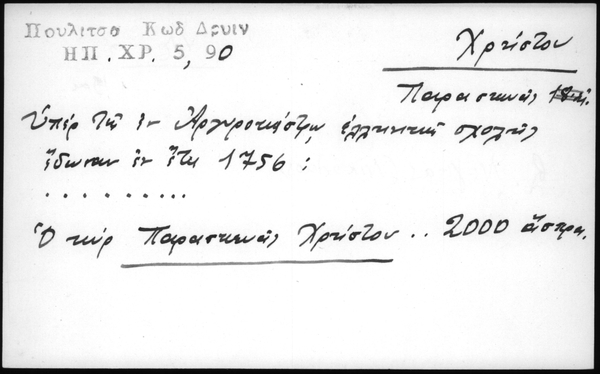 Πουλιτσα Κωδ Δρυιν
ΗΠ. ΧΡ. 5, 90
Χρήστου
Παρασκευᾶς
Ὑπὲρ τῆς ἐν Ἀργυροκάστρῳ ἑλληνικῆς σχολῆς
ἔδωσαν ἐν ἔτει 1756:
. . . . . . . . .
Ὁ κύρ Παρασκευᾶς Χρήστου .. 2000 ἄσπρα.